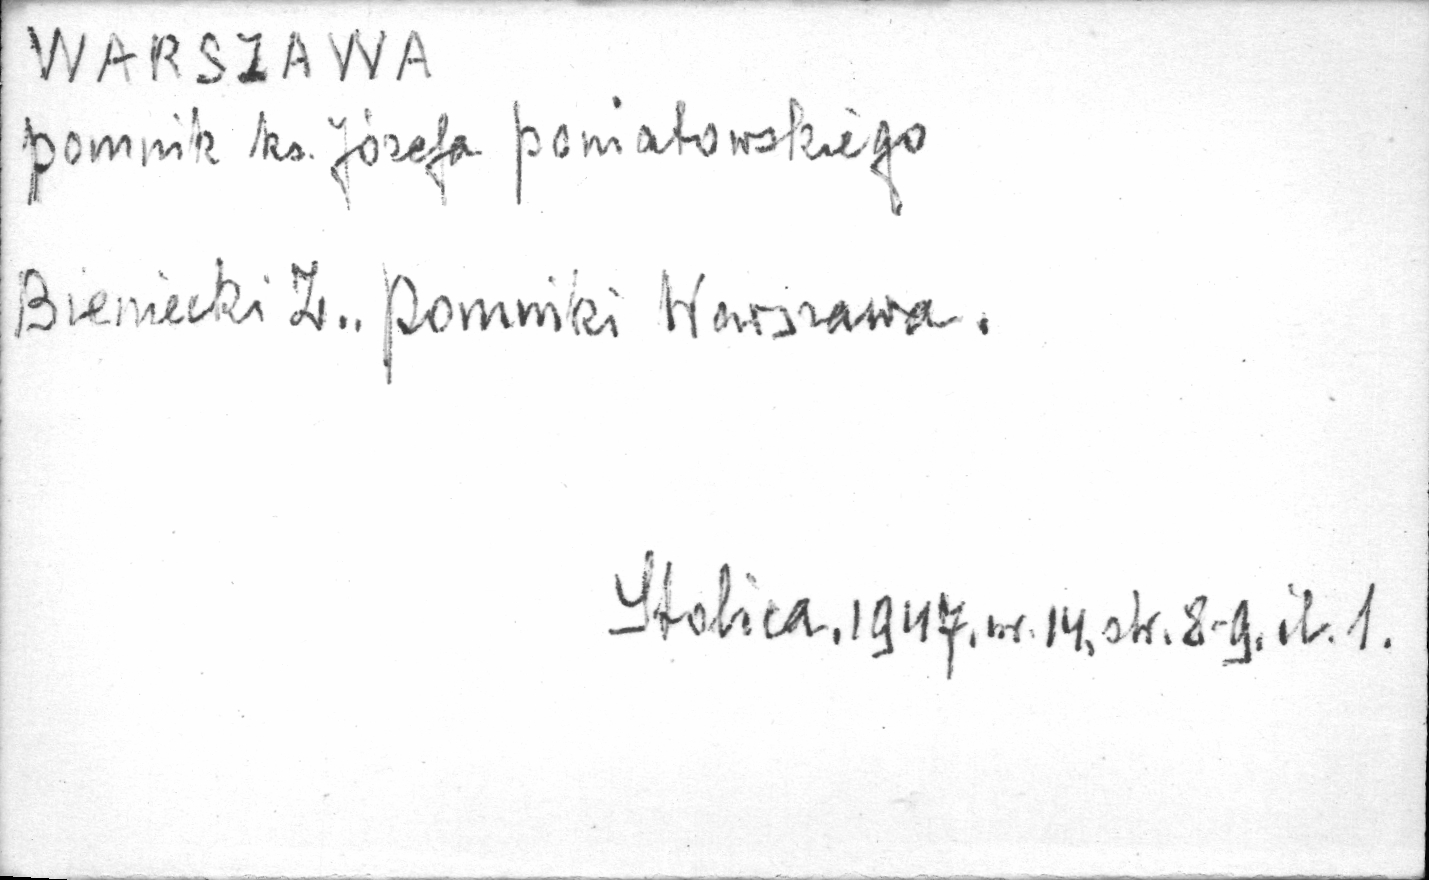 WARSZAWA
pomnik ks. Józefa poniatowskiego
Bieniecki Z.. Pomniki Warszawa.
Stolica, 1947, nr. 14, str. 8-9, il. 1.